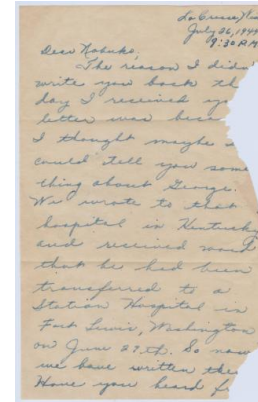 La Crosse, Wis
July 26, 1944
9:30 P.M
Dear Nobuko,
The reason I didn'
write you back th
day I received yo
letter was beca
I thought maybe I
could tell you some
thing about George.
We wrote to that
hospital in Kentucky
and received word
that he had been
transferred to a
Station Hospital in
Fort Lewis, Washington
on June 27th. So now
we have written there
Have you heard f